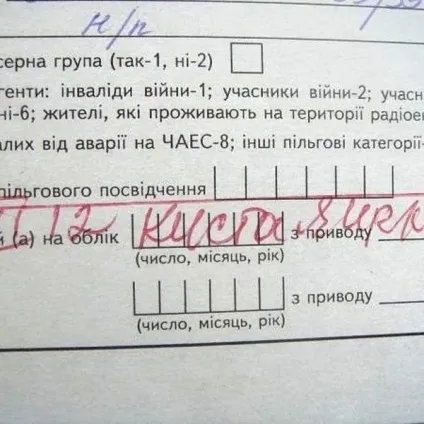 н/п
серна група (так-1, ні-2)
генти: інваліди війни-1; учасники війни-2; учасн
ні-6; жителі, які проживають на території радіоен
алих від аварії на ЧАЕС-8; інші пільгові категорії-
пільгового посвідчення
12 киста
й (а) на облік з приводу
(число, місяць, рік)
з приводу
(число, місяць, рік)